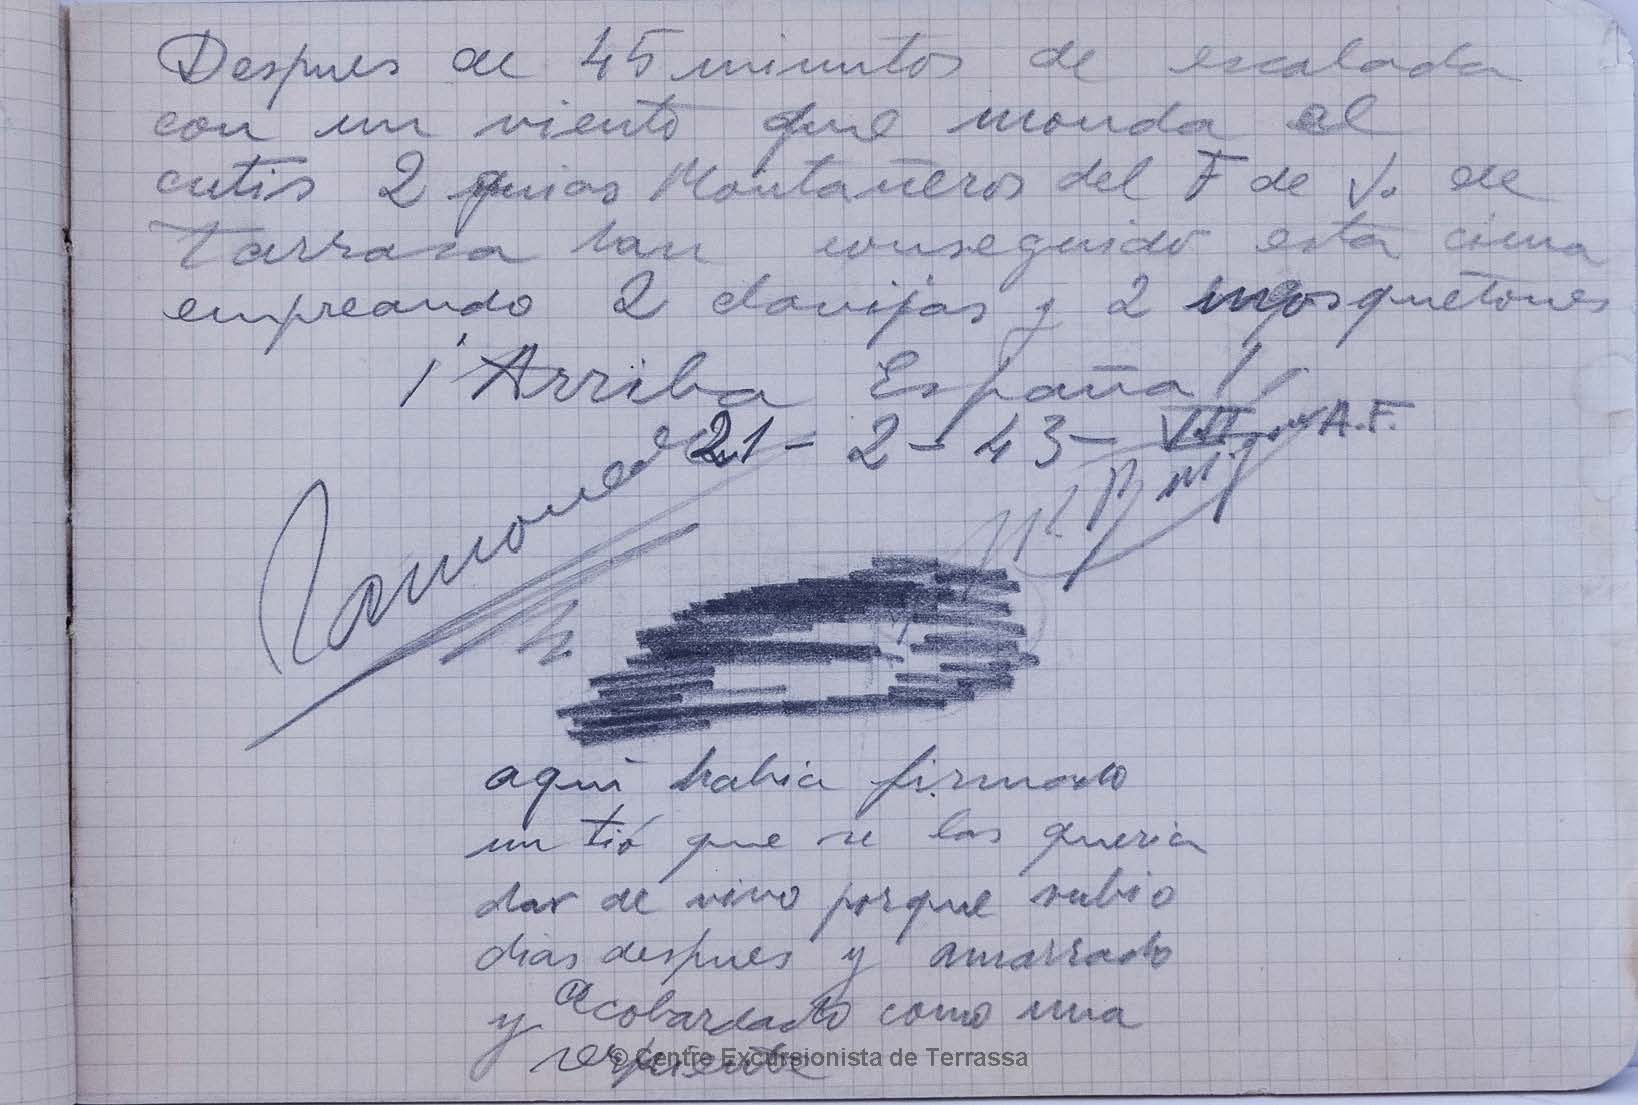 Despues de 45 minutos de escalada
con un viento que monda el
cutis 2 guias Montañeros del F de J. de
Tarrasa han conseguido esta cima
empreando 2 clavijas y 2 mosquetones
¡Arriba España!
21-2-43- VII A.F.
aqui habia firmado
un tió que se las queria
dar de vivo porque subio
dias despues y amarrado
y acobardado como una
serpiente
© Centre Excursionista de Terrassa